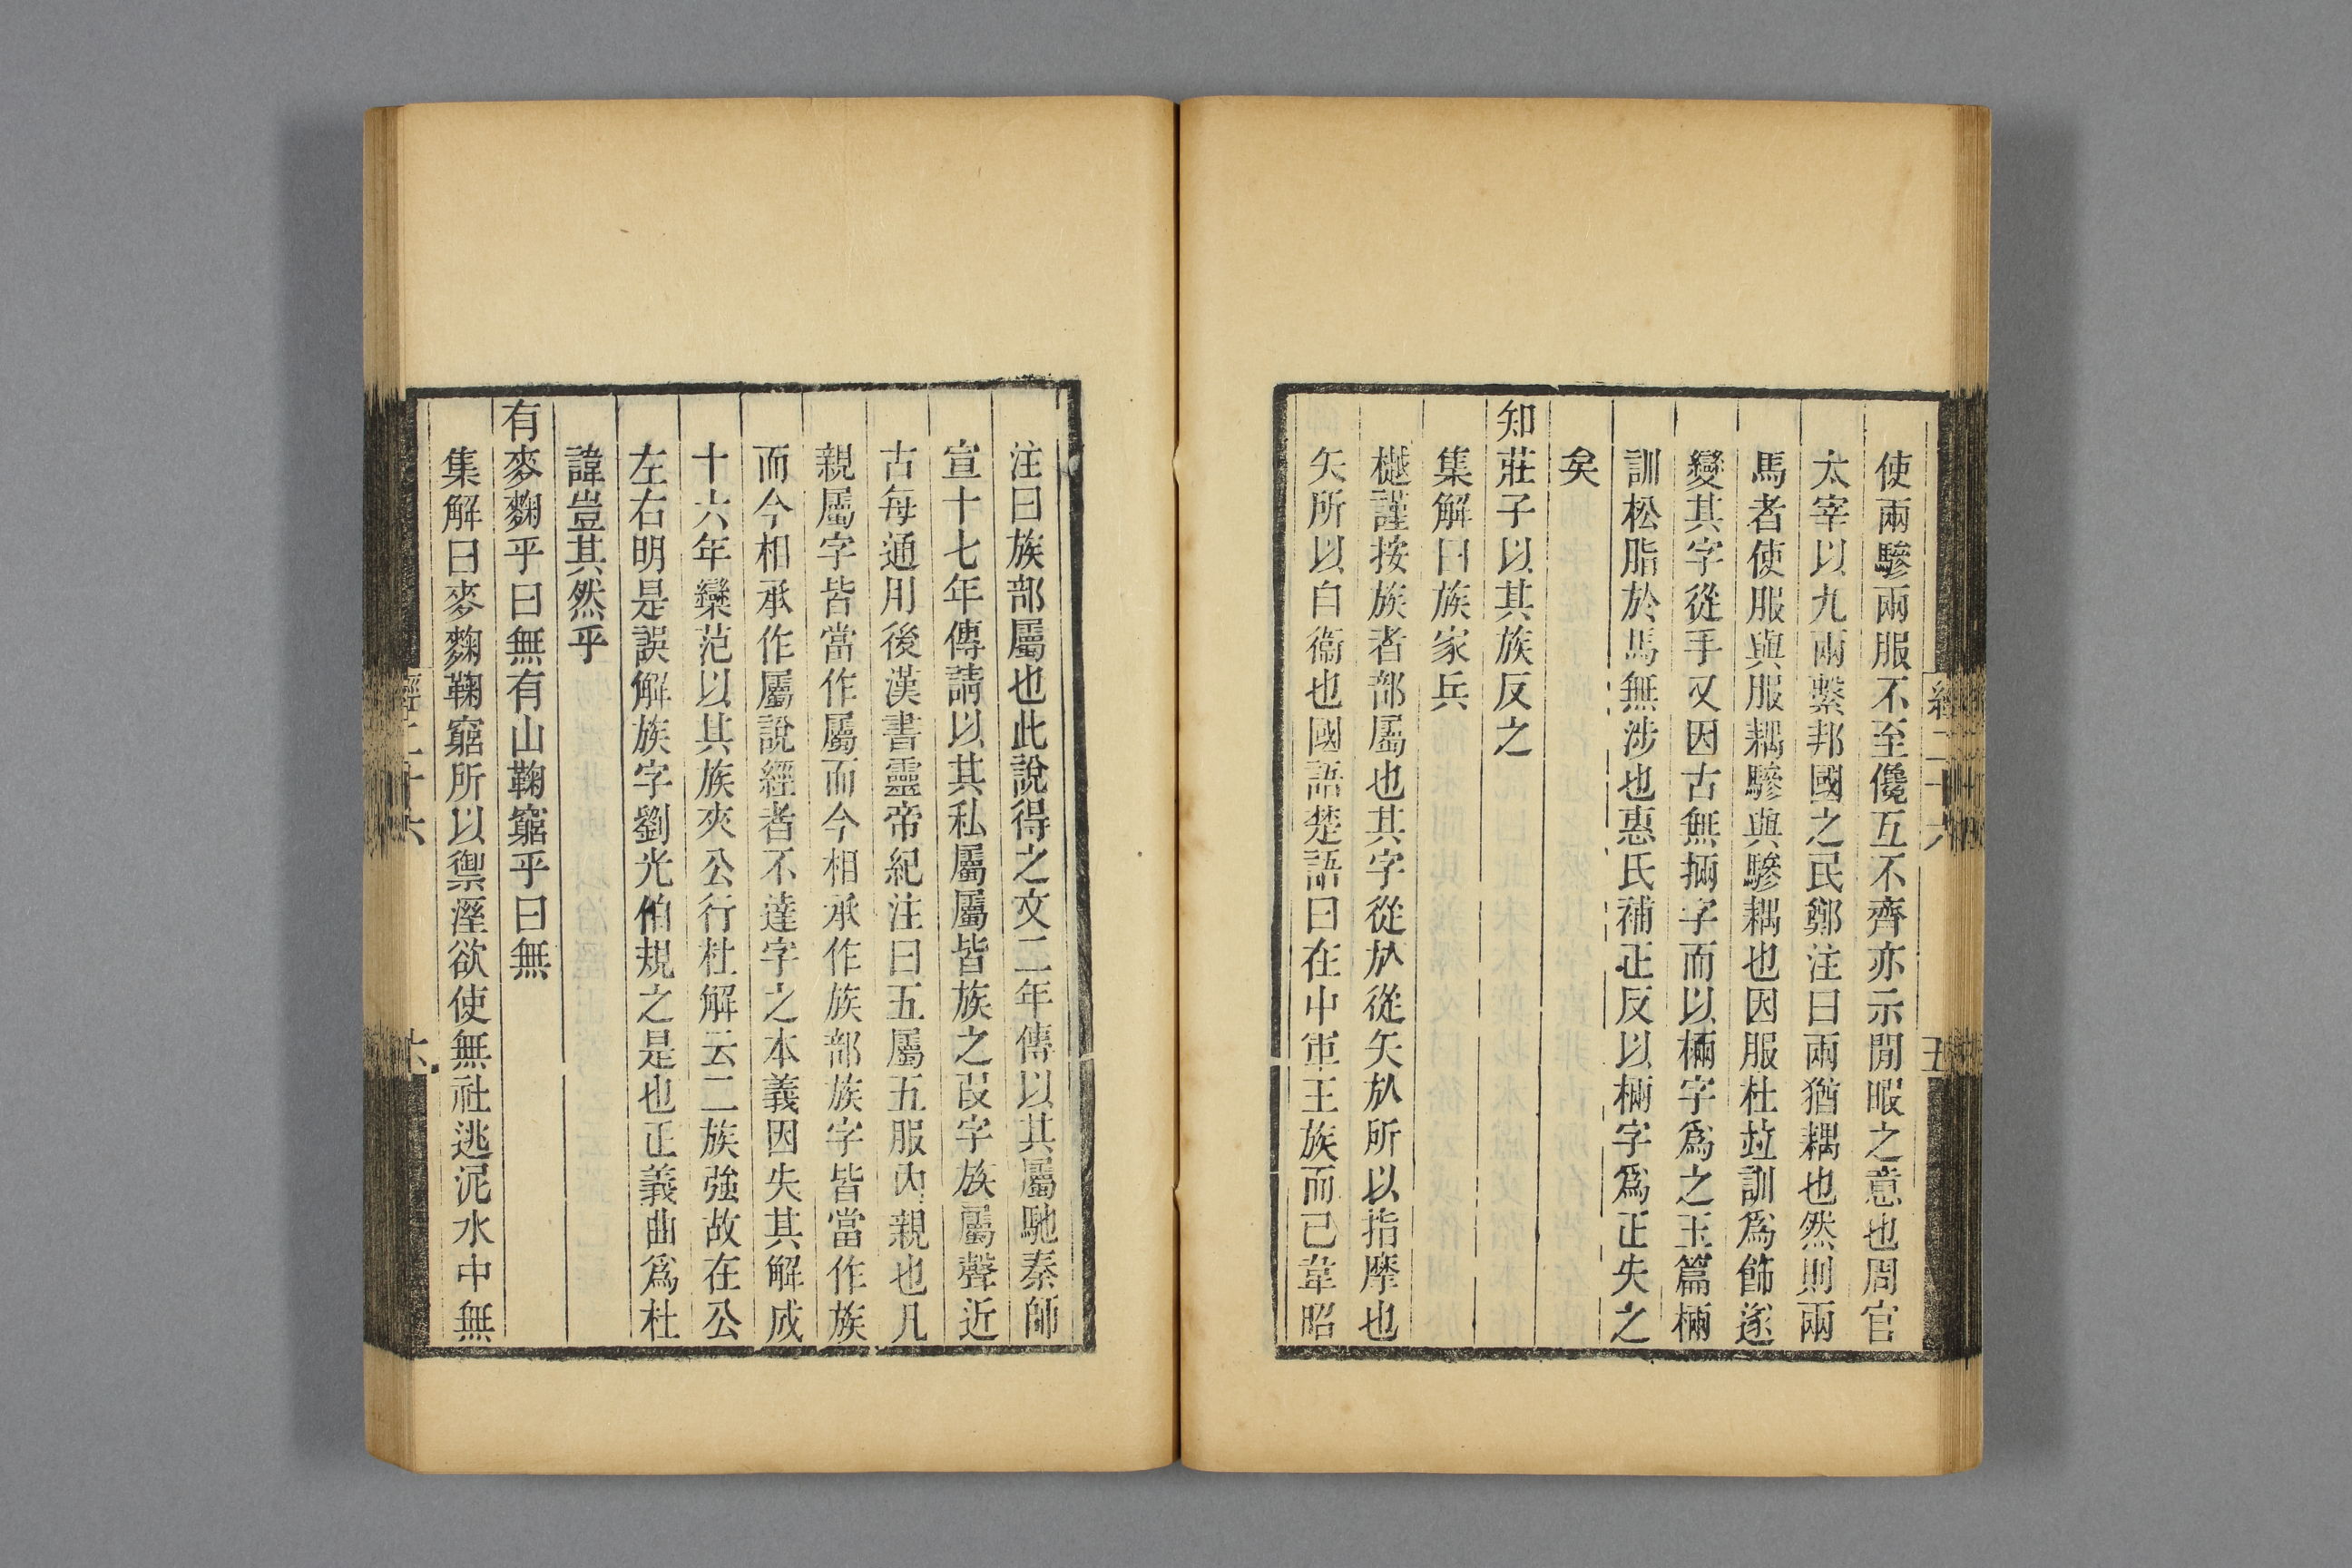 使兩驂兩服不至儳互不齊亦示閒暇之意也周官
太宰以九兩繫邦國之民鄭注曰兩猶耦也然則兩
馬者使服與服耦驂與驂耦也因服杜竝訓爲飾遂
變其字從手又因古無掚字而以㮯字爲之玉篇㮯
訓松脂於馬無涉也惠氏補正反以㮯字爲正失之
矣
知莊子以其族反之
集解曰族家兵
樾謹按族者部屬也其字從㫃從矢㫃所以指摩也
矢所以自衞也國語楚語曰在中軍王族而已韋昭
注曰族部屬也此說得之文二年傳以其屬馳秦師
宣十七年傳請以其私屬屬皆族之叚字族屬聲近
古每通用後漢書靈帝紀注曰五屬五服內親也凡
親屬字皆當作屬而今相承作族部族字皆當作族
而今相承作屬說經者不達字之本義因失其解成
十六年欒范以其族夾公行杜解云二族強故在公
左右明是誤解族字劉光伯規之是也正義曲爲杜
諱豈其然乎
有麥麴乎曰無有山鞠窮乎曰無
集解曰麥麴鞠窮所以禦溼欲使無社逃泥水中無
經二十六
六
五